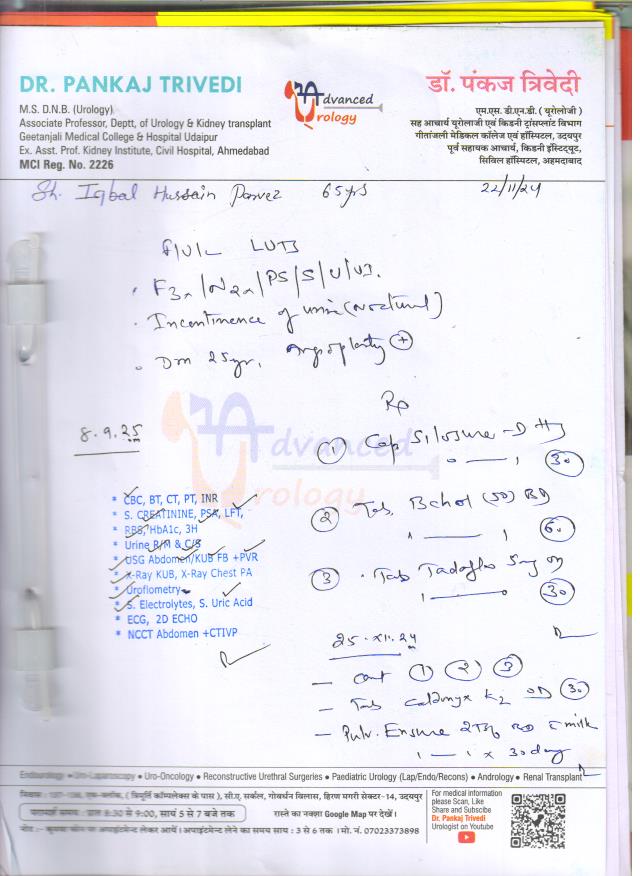 DR. PANKAJ TRIVEDI
M.S. D.N.B. (Urology)
Associate Professor, Deptt, of Urology & Kidney transplant
Geetanjali Medical College & Hospital Udaipur
Ex. Asst. Prof. Kidney Institute, Civil Hospital, Ahmedabad
MCI Reg. No. 2226
Advanced
Urology
डॉ. पंकज त्रिवेदी
एम.एस. डी.एन.डी. ( यूरोलोजी )
सह आचार्य यूरोलाजी एवं किडनी ट्रांसप्लांट विभाग
गीतांजली मेडिकल कॉलेज एवं हॉस्पिटल, उदयपुर
पूर्व सहायक आचार्य, किडनी इंस्टिट्यूट,
सिविल हॉस्पिटल, अहमदाबाद
Sh. Iqbal Hussain Parvez 65yrs 22/11/24
LUTS
Incontinence of urine (Nocturnal)
DM 25yr. Angioplasty +
Rp
8.9.25
1 Cap Silosure-D
30
2 Tab. (50) BD
60
3 Tab 5mg OD
30
Advanced
Urology
* CBC, BT, CT, PT, INR
* S. CREATININE, PSA, LFT,
* RBS, HbA1c, 3H
* Urine R/M & C/S
* USG Abdomen/KUB FB +PVR
* X-Ray KUB, X-Ray Chest PA
* Uroflometry
* S. Electrolytes, S. Uric Acid
* ECG, 2D ECHO
* NCCT Abdomen +CTIVP
25.XI.24
- cont 1 2 3
- Tab K2 OD 30
- Pulv. Ensure BD c milk
x 30 day
Endourology ● Uro-Laparoscopy ● Uro-Oncology ● Reconstructive Urethral Surgeries ● Paediatric Urology (Lap/Endo/Recons) ● Andrology ● Renal Transplant
( त्रिमूर्ति कॉम्पलेक्स के पास ), सी.ए. सर्कल, गोवर्धन विलास, हिरण मगरी सेक्टर-14, उदयपुर
परामर्श समय : प्रातः 8:30 से 9:00, सायं 5 से 7 बजे तक
रास्ते का नक्शा Google Map पर देखें।
नोट :- कृपया फोन पर अपाइंटमेन्ट लेकर आयें। अपाइंटमेन्ट लेने का समय सायं : 3 से 6 तक । मो. नं. 07023373898
For medical information
please Scan, Like
Share and Subscibe
Dr. Pankaj Trivedi
Urologist on Youtube